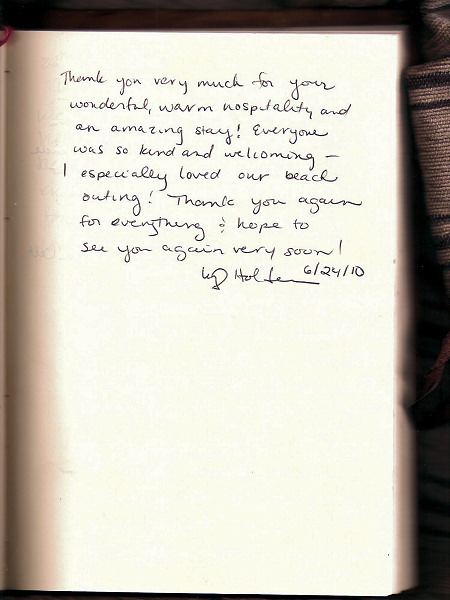 Thank you very much for your
wonderful, warm hospitality and
an amazing stay! Everyone
was so kind and welcoming –
I especially loved our beach
outing! Thank you again
for everything & hope to
see you again very soon!
6/24/10